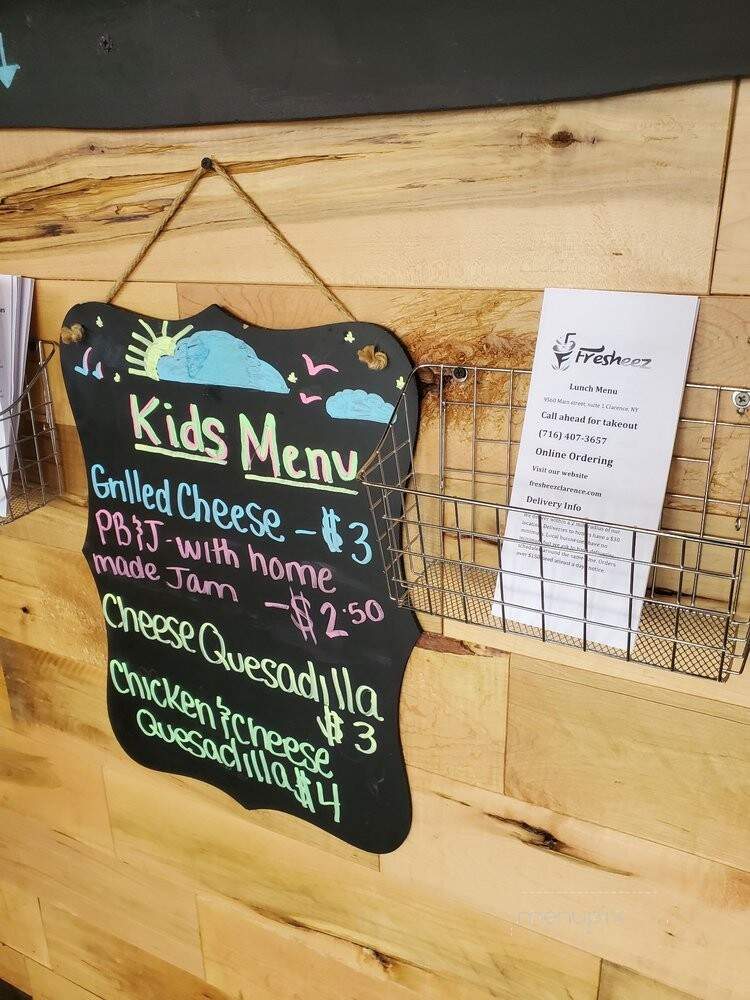 Kids Menu
Grilled Cheese - $3
PB&J - with home
made Jam - $2.50
Cheese Quesadilla
$3
Chicken & cheese
Quesadilla $4
Fresheez
Lunch Menu
9560 Main street, suite 1 Clarence, NY
Call ahead for takeout
(716) 407-3657
Online Ordering
Visit our website
fresheezclarence.com
Delivery Info
menupix